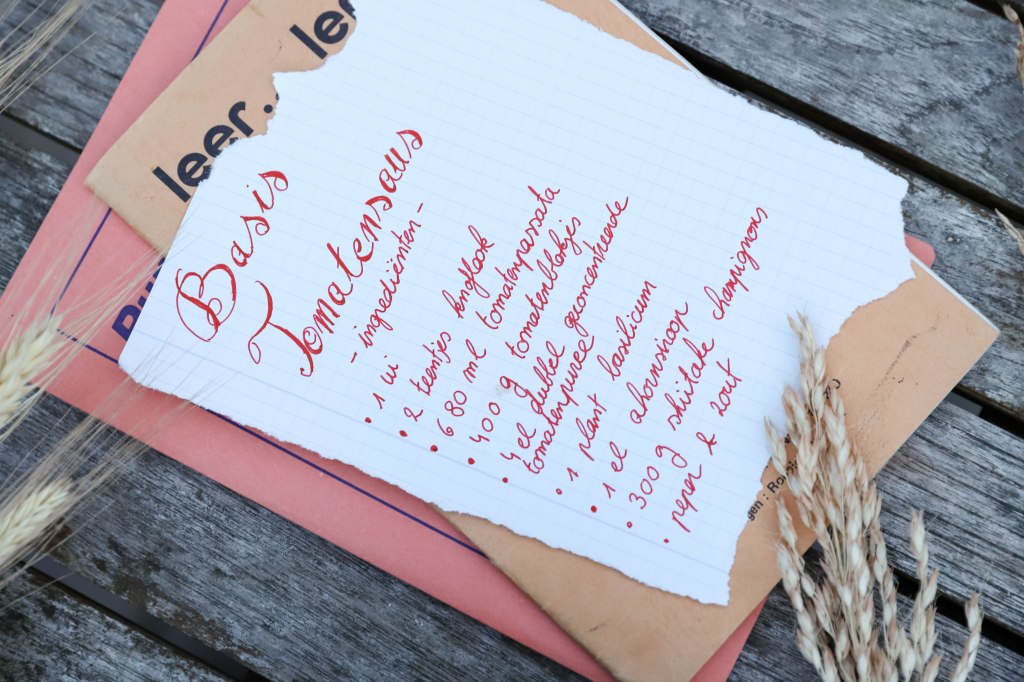 leer.
leer
Basis
Tomatensaus
- ingrediënten -
• 1 ui
• 2 teentjes knoflook
• 680 ml tomatenpassata
• 400 g tomatenblokjes
• 4 el dubbel geconcentreerde
tomatenpuree
• 1 plant basilicum
• 1 el ahornsiroop
• 300 g shiitake champignons
• peper & zout
gen: Ro